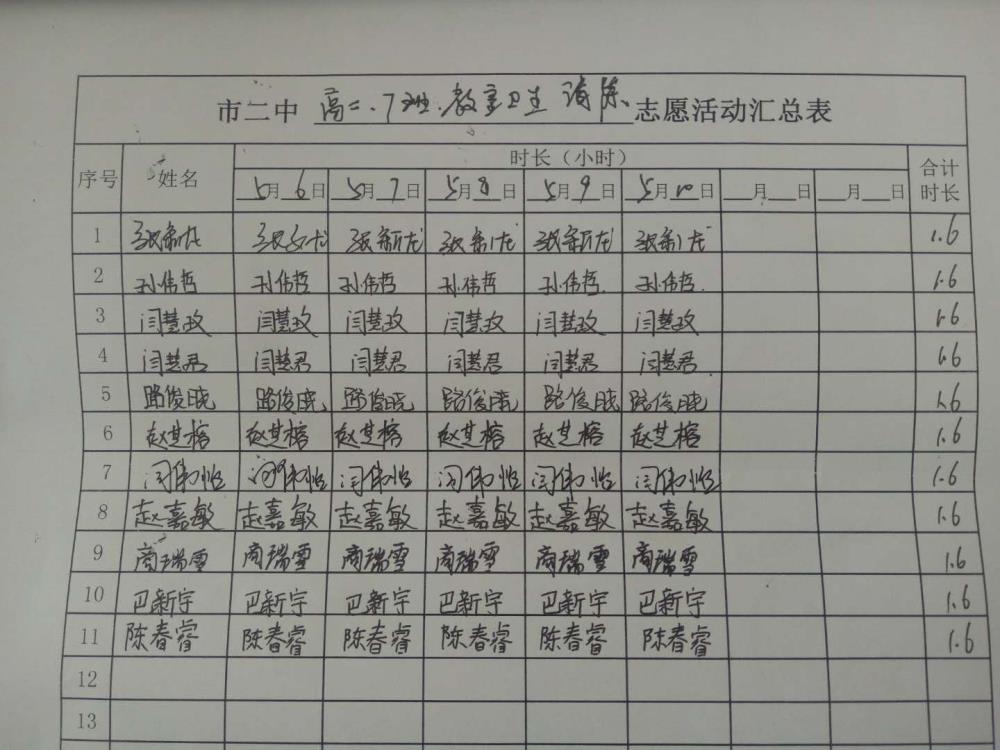 市二中 高二.7班.教室卫生 清除 志愿活动汇总表
序号 姓名 时长（小时） 合计时长
5月6日 5月7日 5月8日 5月9日 5月10日 月 日 月 日
1 张新龙 张新龙 张新龙 张新龙 张新龙 张新龙 1.6
2 孙伟哲 孙伟哲 孙伟哲 孙伟哲 孙伟哲 孙伟哲 1.6
3 闫慧玫 闫慧玫 闫慧玫 闫慧玫 闫慧玫 闫慧玫 1.6
4 闫慧君 闫慧君 闫慧君 闫慧君 闫慧君 闫慧君 1.6
5 路俊晓 路俊晓 路俊晓 路俊晓 路俊晓 路俊晓 1.6
6 赵芝榕 赵芝榕 赵芝榕 赵芝榕 赵芝榕 赵芝榕 1.6
7 闫伟怡 闫伟怡 闫伟怡 闫伟怡 闫伟怡 闫伟怡 1.6
8 赵嘉敏 赵嘉敏 赵嘉敏 赵嘉敏 赵嘉敏 赵嘉敏 1.6
9 商瑞雪 商瑞雪 商瑞雪 商瑞雪 商瑞雪 商瑞雪 1.6
10 巴新宇 巴新宇 巴新宇 巴新宇 巴新宇 巴新宇 1.6
11 陈春睿 陈春睿 陈春睿 陈春睿 陈春睿 陈春睿 1.6
12
13